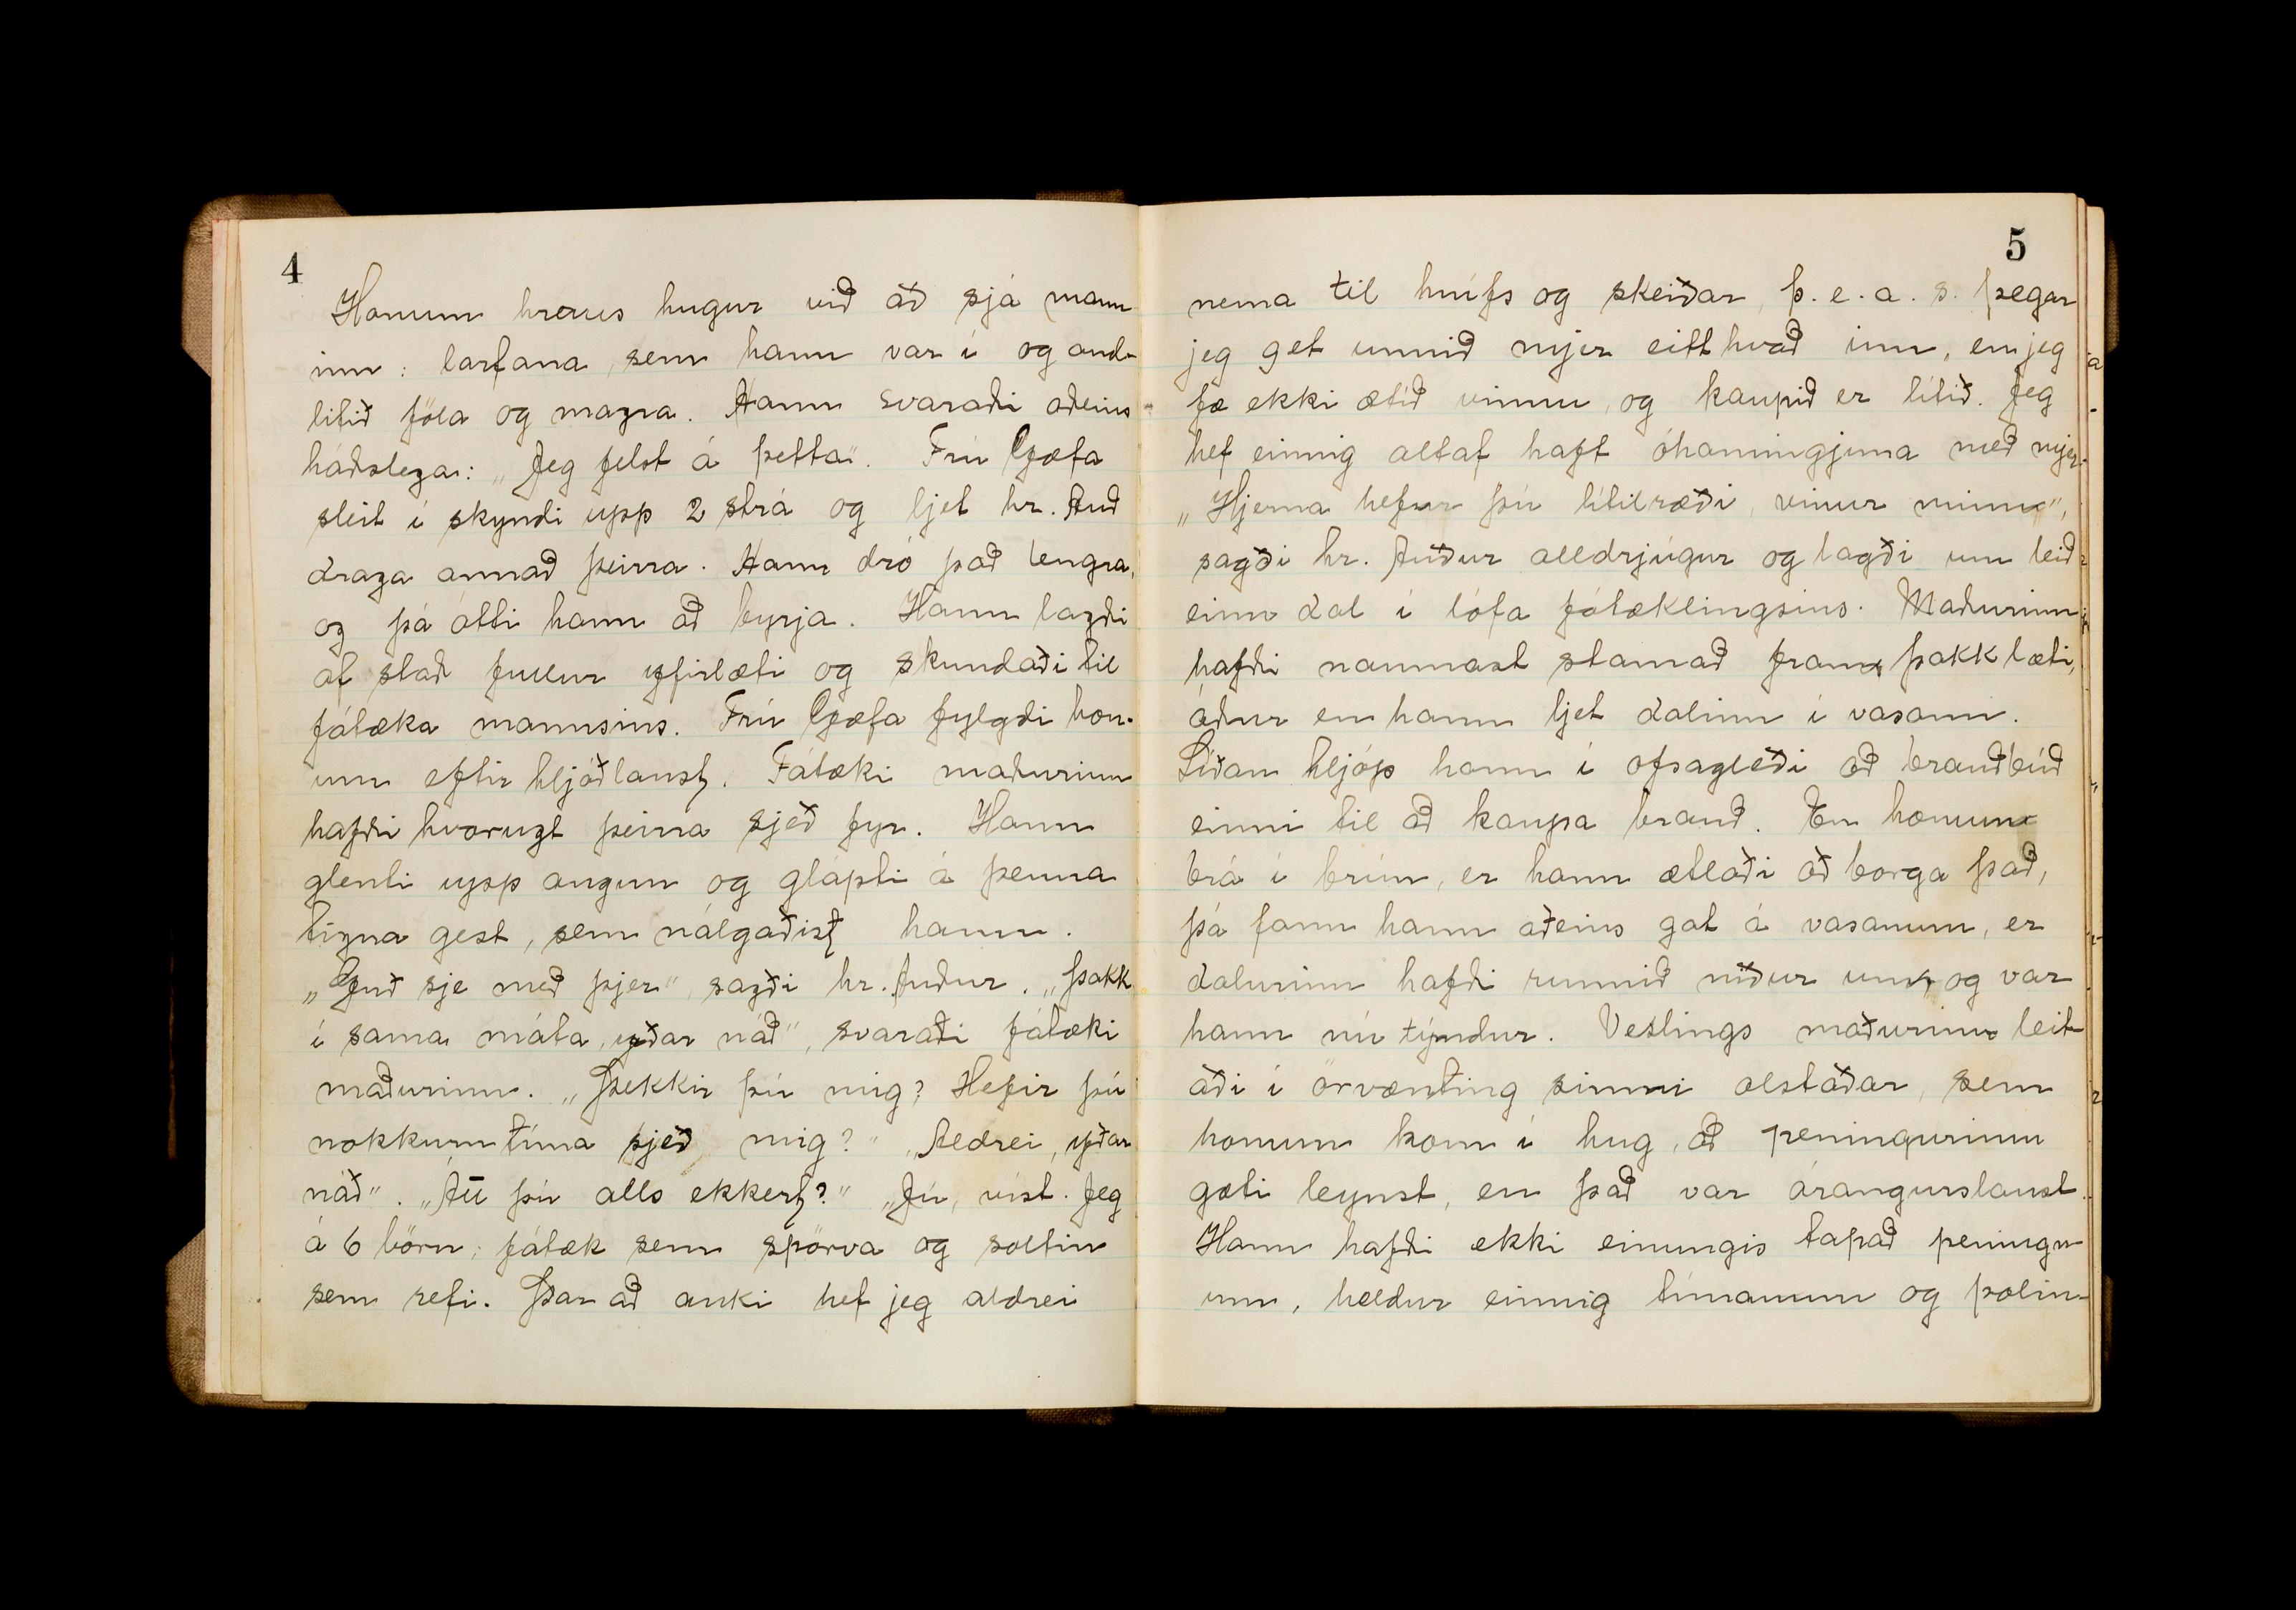 4
Honum hraus hugur við að sjá mann-
inn: larfana, sem hann var í og and-
litið föla og magra. Hann svaraði aðeins
háðslega: „Jeg felst á þetta". Frú Gæfa
sleit í skyndi upp 2 strá og ljet hr. Auð
draga annað þeirra. Hann dró það lengra,
og þá átti hann að byrja. Hann lagði
af stað fullur yfirlæti og skundaði til
fátæka mannsins. Frú Gæfa fylgdi hon-
um eftir hljóðlaust. Fátæki maðurinn
hafði hvorugt þeirra sjeð fyr. Hann
glenti upp augun og glápti á þenna
tigna gest, sem nálgaðist hann.
„Guð sje með þjer", sagði hr. Auður. „Þakk
í sama máta, yðar náð", svaraði fátæki
maðurinn. „Þekkir þú mig? Hefir þú
nokkurn tíma sjeð mig?" „Aldrei, yðar
náð". „Átt þú alls ekkert?" „Jú, víst. Jeg
á 6 börn, fátæk sem spörva og soltin
sem refi. Þar að auki hef jeg aldrei
5
nema til hnífs og skeiðar, þ. e. a. s. þegar
jeg get unnið mjer eitthvað inn, en jeg
fæ ekki ætíð vinnu, og kaupið er lítið. Jeg
hef einnig altaf haft óhamingjuna með mjer.
„Hjerna hefur þú lítilræði, vinur minn",
sagði hr. Auður alldrjúgur og lagði um leið
einn dal í lófa fátæklingsins. Maðurinn
hafði naumast stamað fram þakklæti,
áður en hann ljet dalinn í vasann.
Síðan hljóp hann í ofsagleði að brauðbúð
einni til að kaupa brauð. En honum
brá í brún, er hann ætlaði að borga það,
þá fann hann aðeins gat á vasanum, er
dalurinn hafði runnið niður um, og var
hann nú týndur. Veslings maðurinn leit-
aði í örvænting sinni alstaðar, sem
honum kom í hug, að peningurinn
gæti leynst, en það var árangurslaust.
Hann hafði ekki einungis tapað peningn-
um, heldur einnig tímanum og þolin-